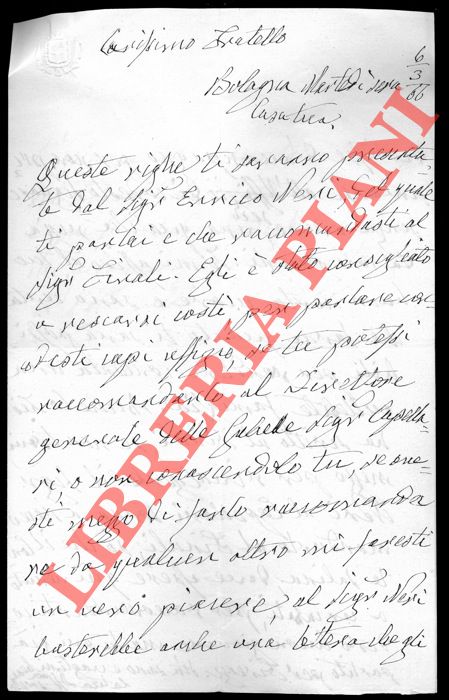 Carissimo Fratello
6
3
66
Bologna Martedì sera
Casa tua.
Queste righe ti saranno presenta-
te dal Sigr Enrico Neri, del quale
ti parlai e che raccomandasti al
Sigr Finali. Egli è stato consigliato
a recarsi costì per parlare con
codesti capi uffizio, se tu potessi
raccomandarlo al Direttore
generale delle Gabelle Sigr Capella-
ri, o non conoscendolo tu, se aves-
ti mezzo di farlo raccomanda
re da qualcun altro mi faresti
un vero piacere, al Sigr Neri
basterebbe anche una lettera che gli
LIBRERIA PIANI